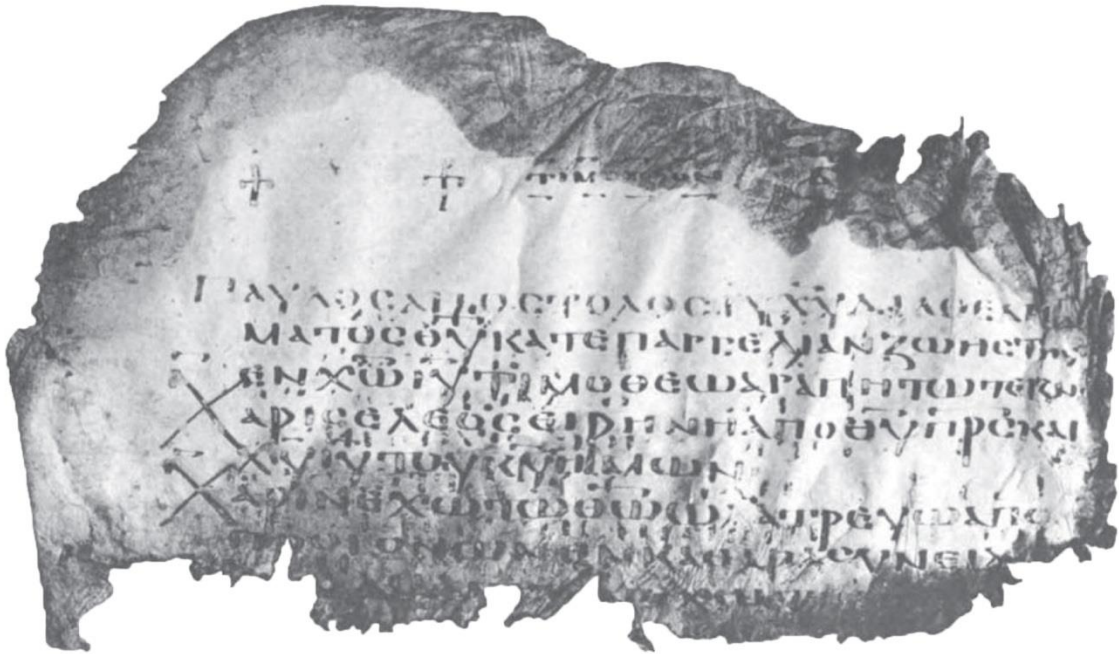 ✝ ✝ ΤΙΜΟΘΕΟΝ
ΠΑΥΛΟϹ ΑΠΟϹΤΟΛΟϹ ΙΥ ΧΥ ΔΙΑ ΘΕΛΗ
ΜΑΤΟϹ ΘΥ ΚΑΤ ΕΠΑΓΓΕΛΙΑΝ ΖΩΗϹ ΤΗϹ
ΕΝ ΧΩ ΙΥ ΤΙΜΟΘΕΩ ΑΓΑΠΗΤΩ ΤΕΚΝΩ
ΧΑΡΙϹ ΕΛΕΟϹ ΕΙΡΗΝΗ ΑΠΟ ΘΥ ΠΡϹ ΚΑΙ
ΧΥ ΙΥ ΤΟΥ ΚΥ ΗΜΩΝ
ΧΑΡΙΝ ΕΧΩ ΤΩ ΘΩ Ω ΛΑΤΡΕΥΩ ΑΠΟ
ΠΡΟΓΟΝΩΝ ΕΝ ΚΑΘΑΡΑ ϹΥΝΕΙΔ